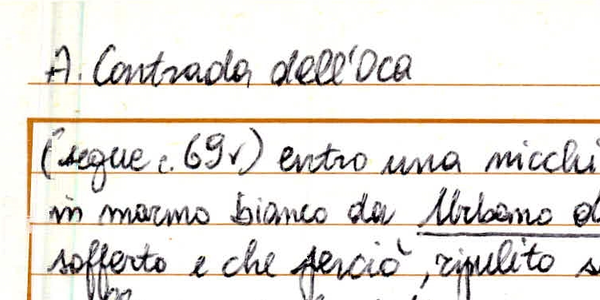 A. Contrada dell'Oca
(segue c. 69v) entro una nicchi
in marmo bianco da Urbano d
sofferto e che perciò, ripulito s